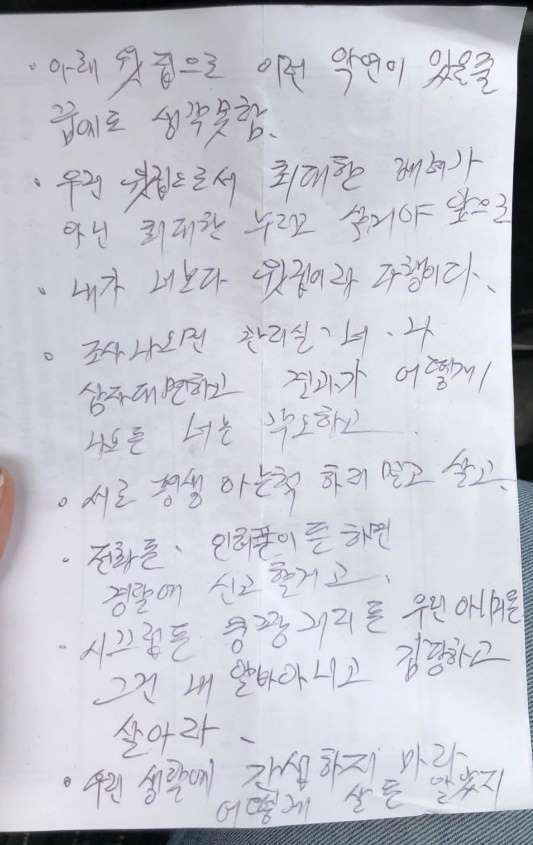 · 아래 윗집으로 이런 악연이 있을줄
꿈에도 생각못함.
· 우린 윗집으로서 최대한 배려가
아닌 최대한 누리고 살거야 앞으로
· 내가 너보다 윗집이라 다행이다.
· 조사나오면 관리실·너·나
삼자대면하고 결과가 어떻게
나오든 너는 각오하고
· 서로 평생 아는척 하지 말고 살고.
· 전화든. 인터폰이든 하면
경찰에 신고할거고.
· 시끄럽든 쿵쾅 거리든 우린 아니며
그건 내 알바아니고 감당하고
살아라.
· 우린 생활에 간섭하지 마라
어떻게 살든